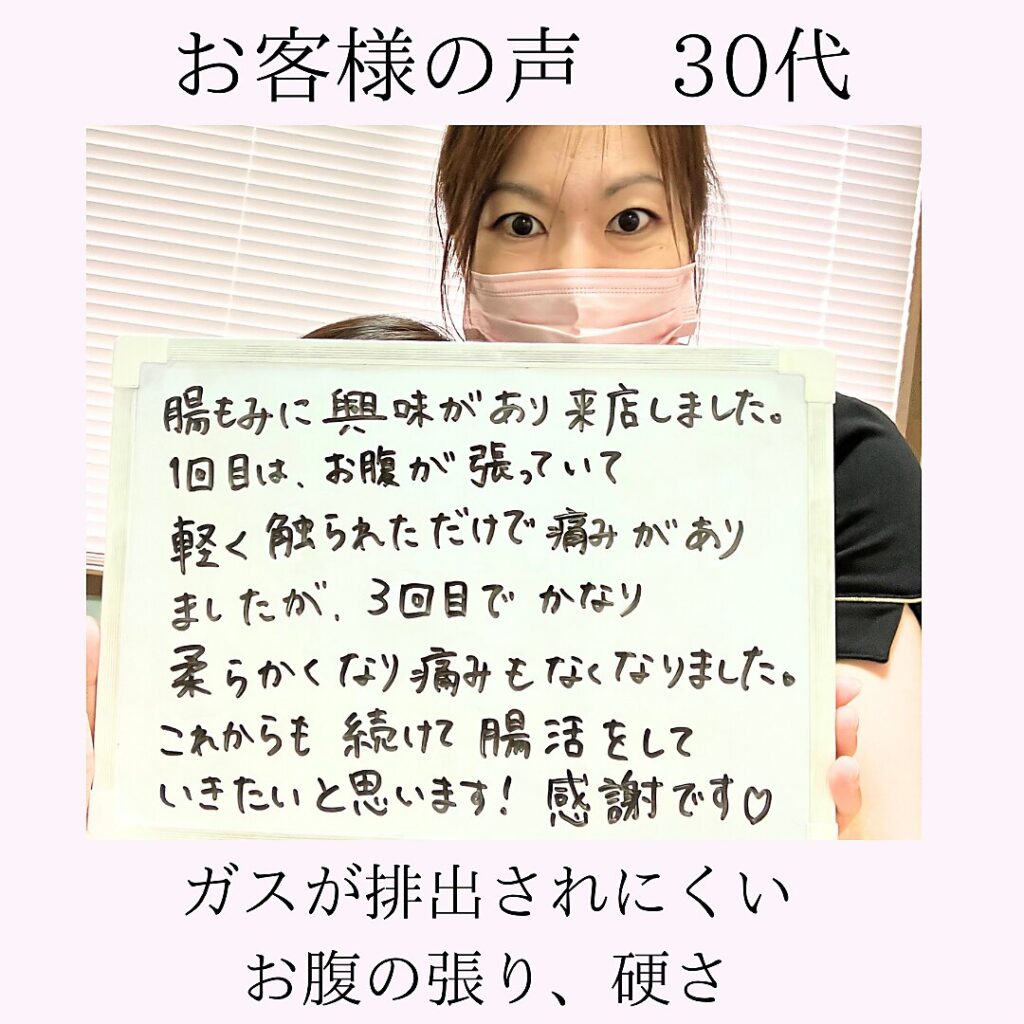 お客様の声　30代
腸もみに興味があり来店しました。
1回目は、お腹が張っていて
軽く触られただけで痛みがあり
ましたが、3回目でかなり
柔らかくなり痛みもなくなりました。
これからも続けて腸活をして
いきたいと思います！感謝です♡
ガスが排出されにくい
お腹の張り、硬さ